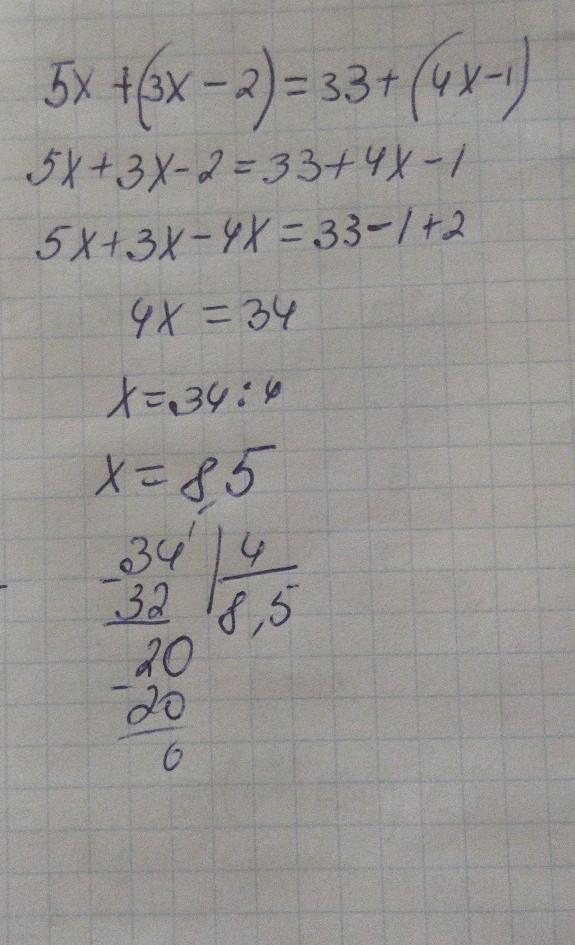 5x+(3x-2)=33+(4x-1)
5x+3x-2=33+4x-1
5x+3x-4x=33-1+2
4x=34
x=34:4
x=8,5
-34 | 4
32 | 8,5
-20
20
0